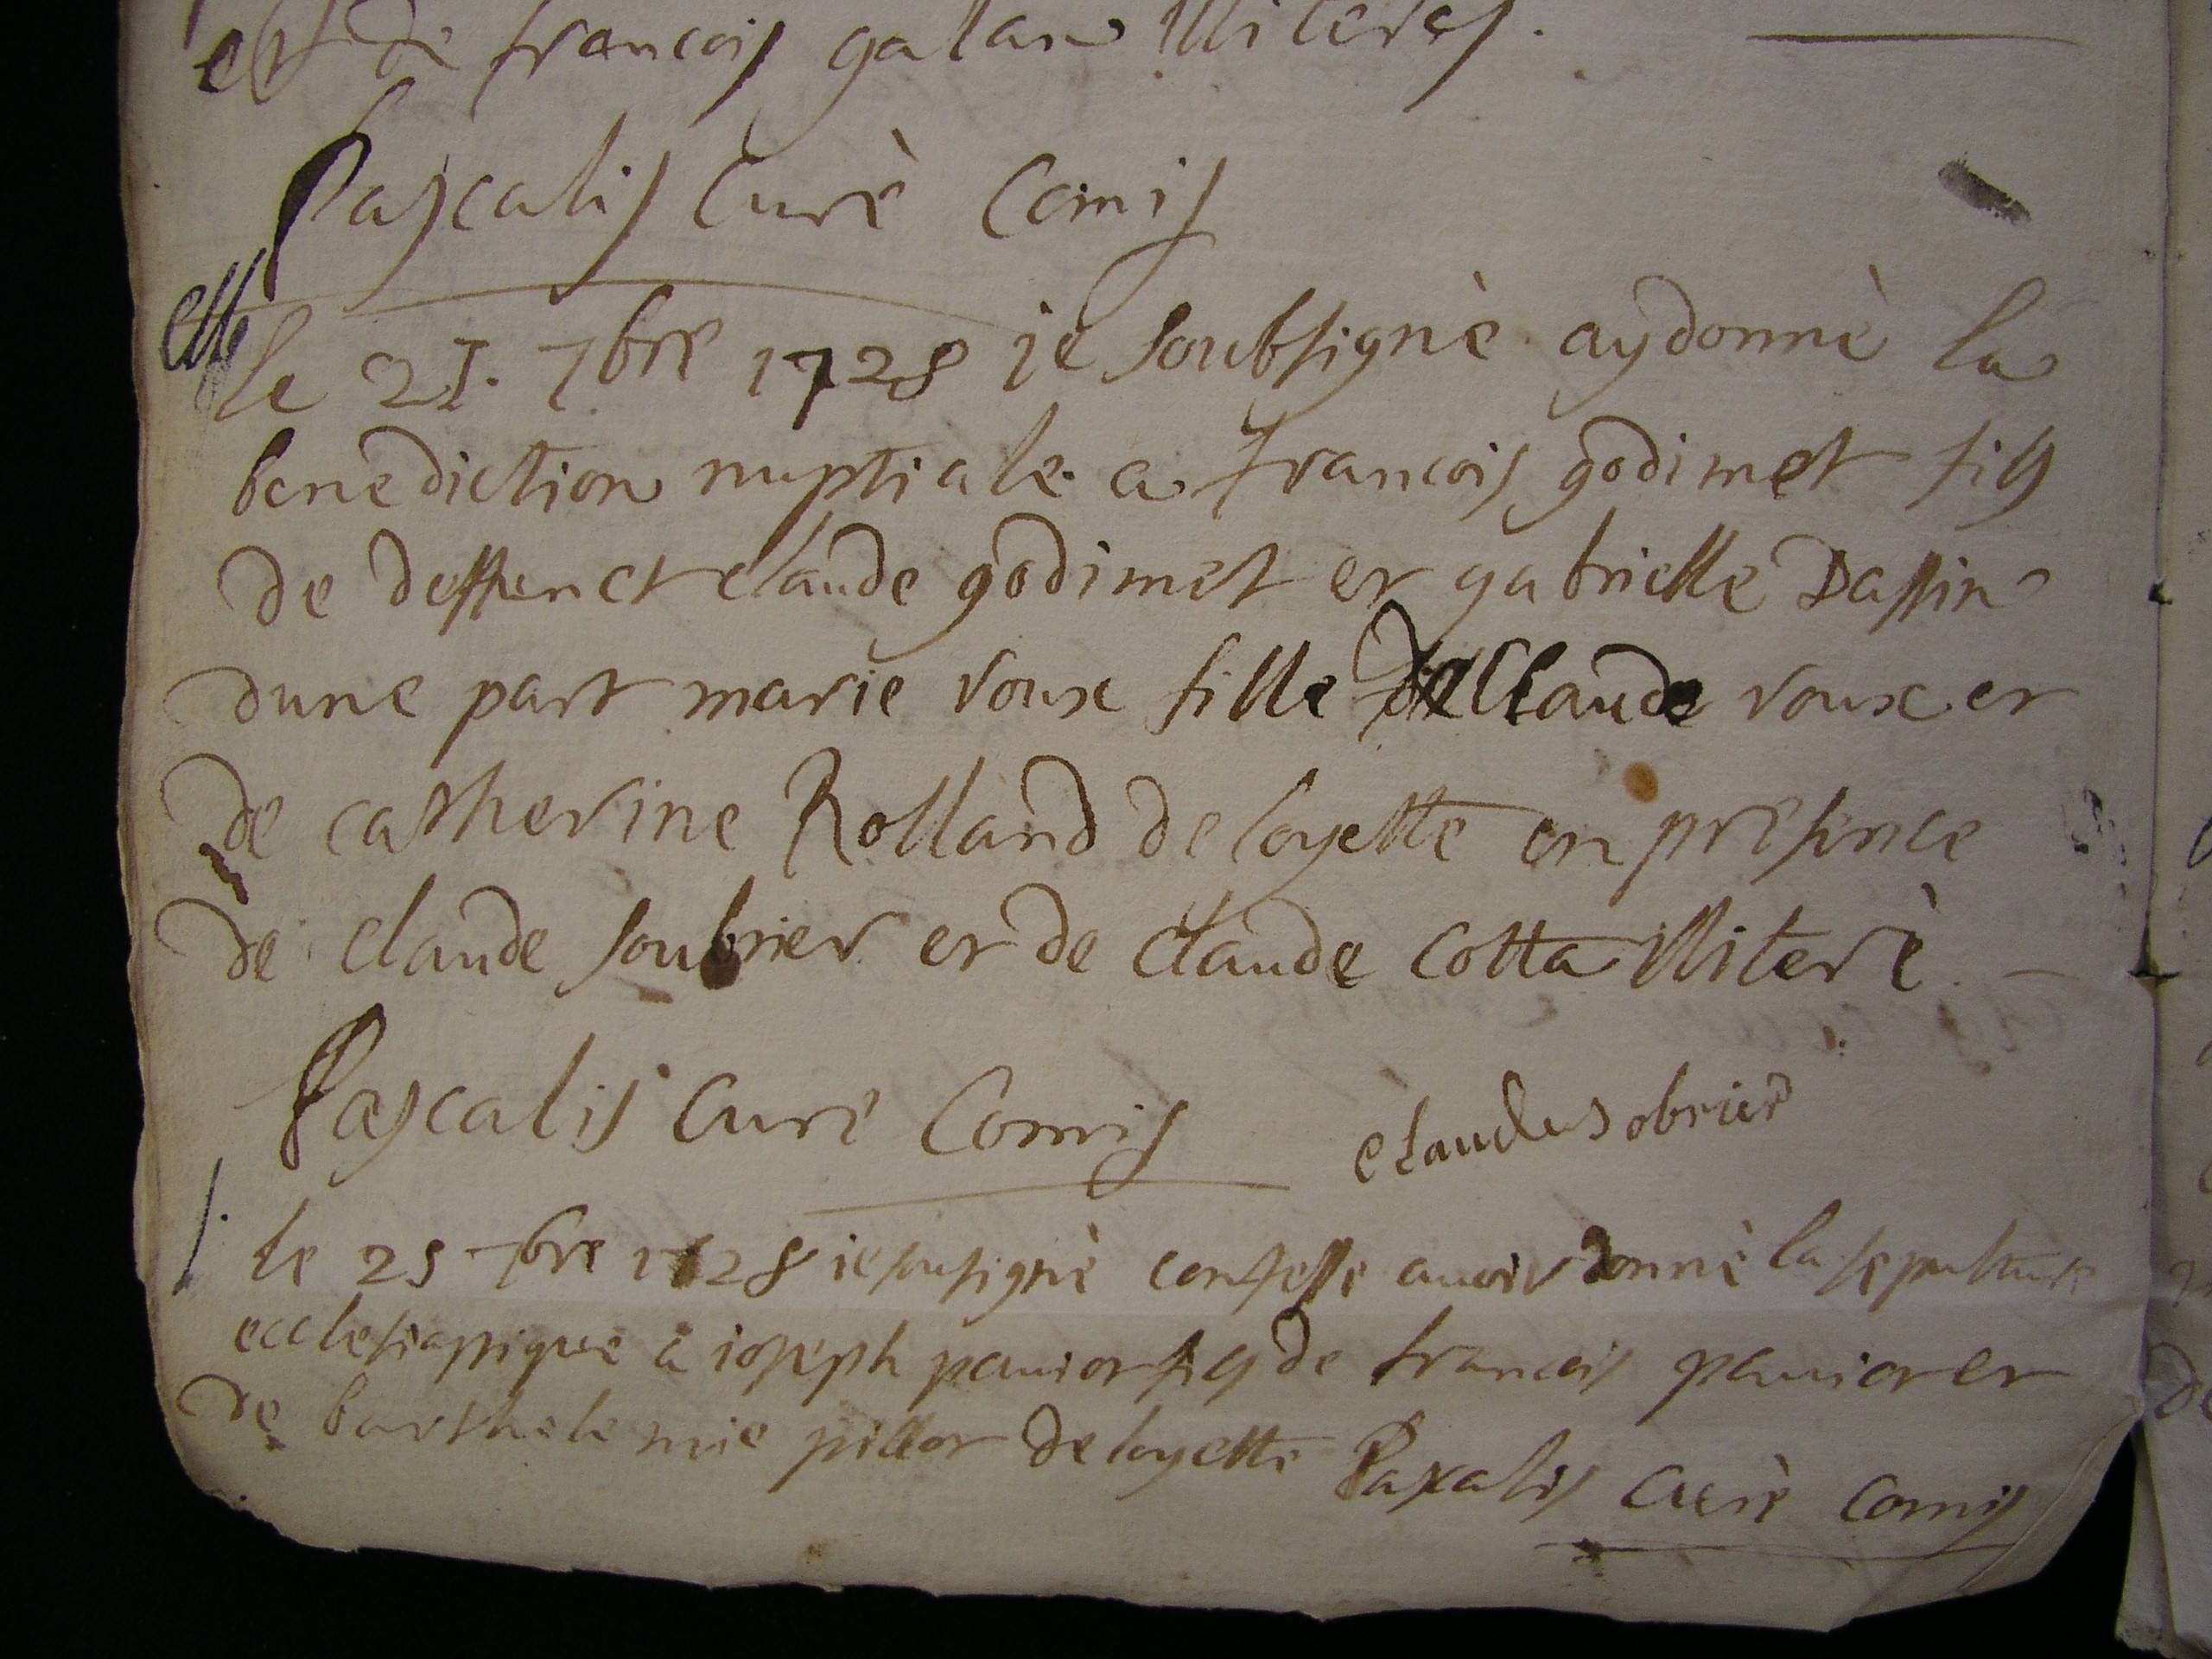 et de francois galan illiteres.
Pascalis Curè Comis
le 21. 7bre 1728 je soubsignè ay donnè la
benediction nuptiale a francois godimet fils
de deffunct claude godimet et gabrielle Dassin
dune part marie roux fille de Claude roux et
de catherine Rolland de loyette en presence
de claude soubrier et de claude cotta illiterè
Pascalis Curè Comis claude sobrier
le 25 7bre 1728 ie sousignè confesse auoir donnè la sepulture
ecclesiastique à ioseph pauiot fils de francois pauiot et
de barthelemie pillot de loyette Pascalis Curè Comis